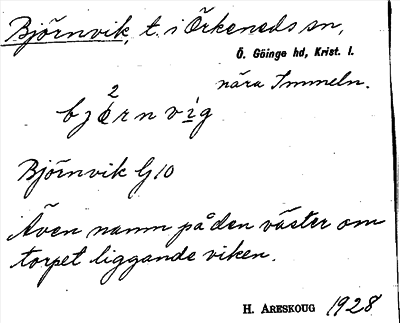 Björnvik, t. i Örkeneds sn,
Ö. Göinge hd, Krist. l.
nära Immeln.
Björnvik G 10
Även namn på den väster om
torpet liggande viken.
H. ARESKOUG 1928